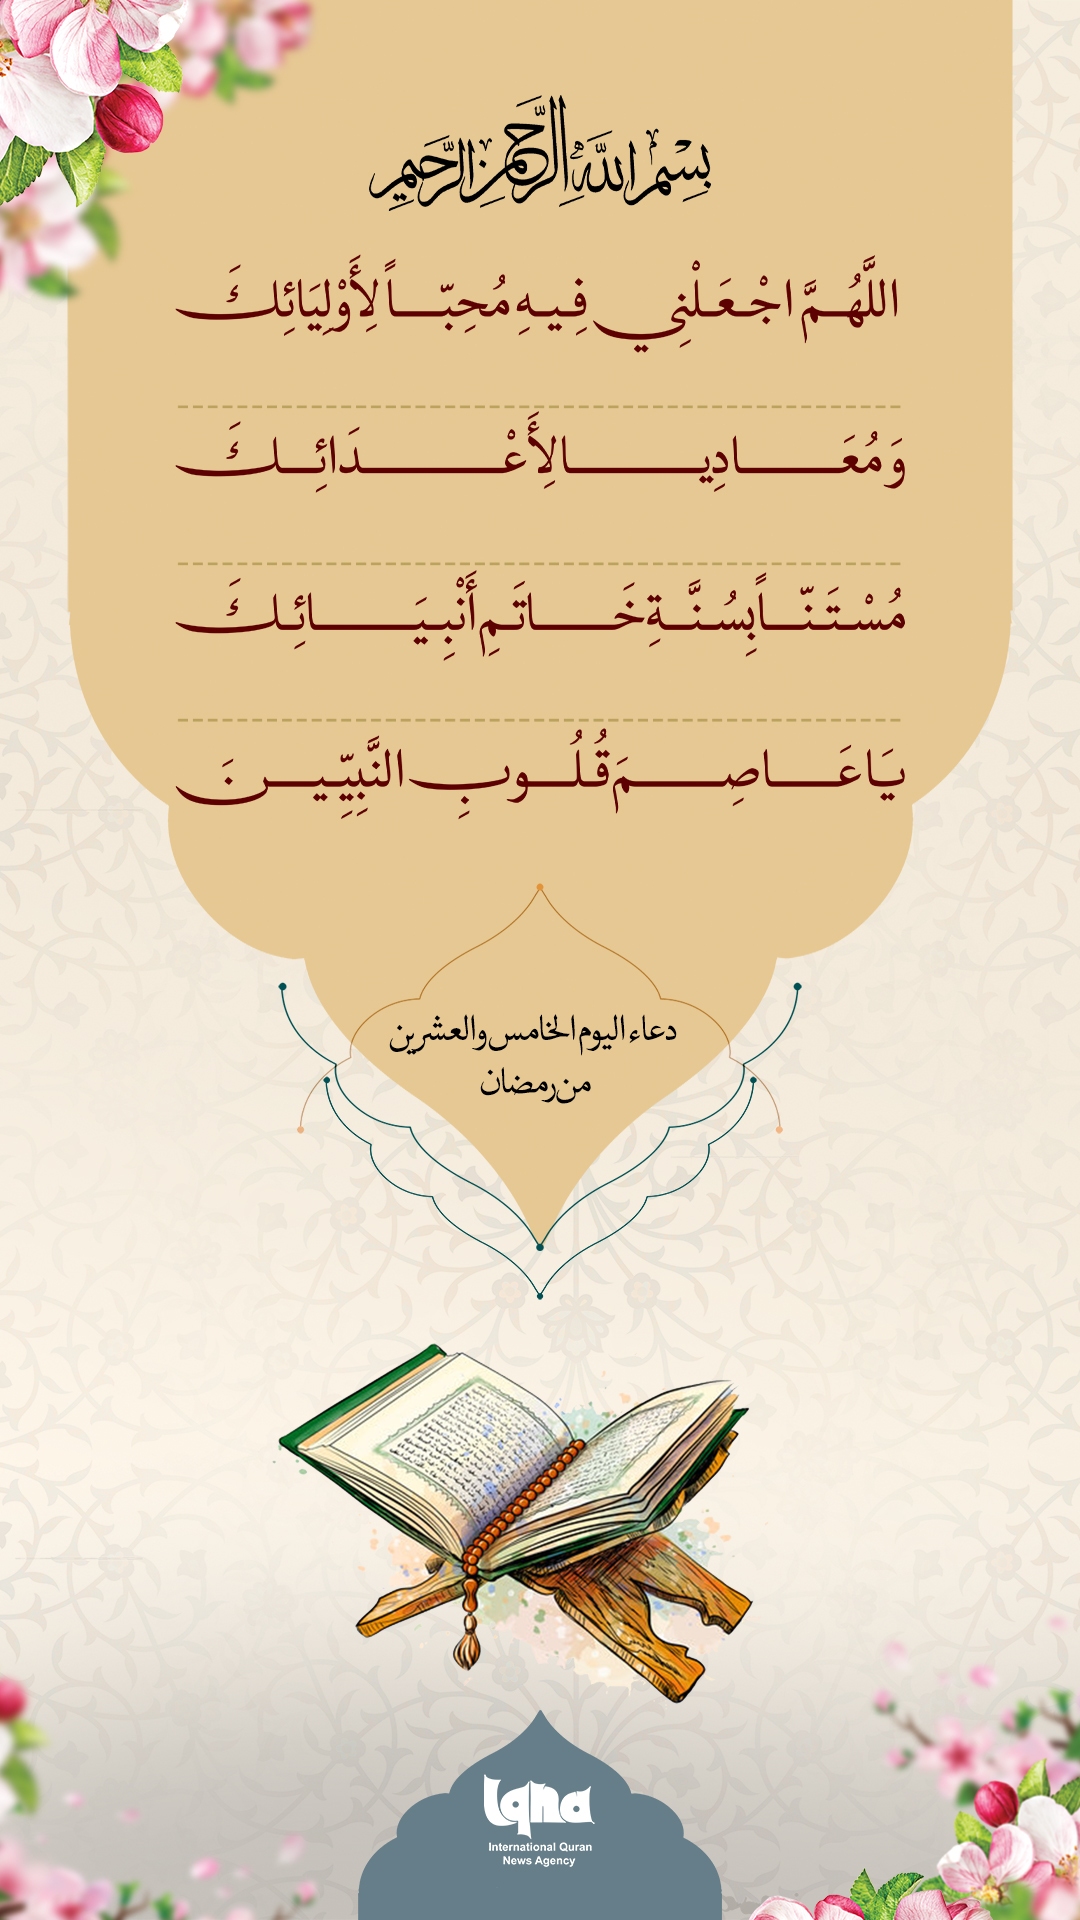 بِسْمِ اللَّهِ الرَّحْمَنِ الرَّحِيمِ
اللَّهُمَّ اجْعَلْنِي فِيهِ مُحِبّاً لِأَوْلِيَائِكَ
وَ مُعَادِيا لِأَعْدَائِكَ
مُسْتَنّاً بِسُنَّةِ خَاتَمِ أَنْبِيَائِكَ
يَا عَاصِمَ قُلُوبِ النَّبِيِّينَ
دعاء اليوم الخامس والعشرين
من رمضان
Iqna
International Quran
News Agency